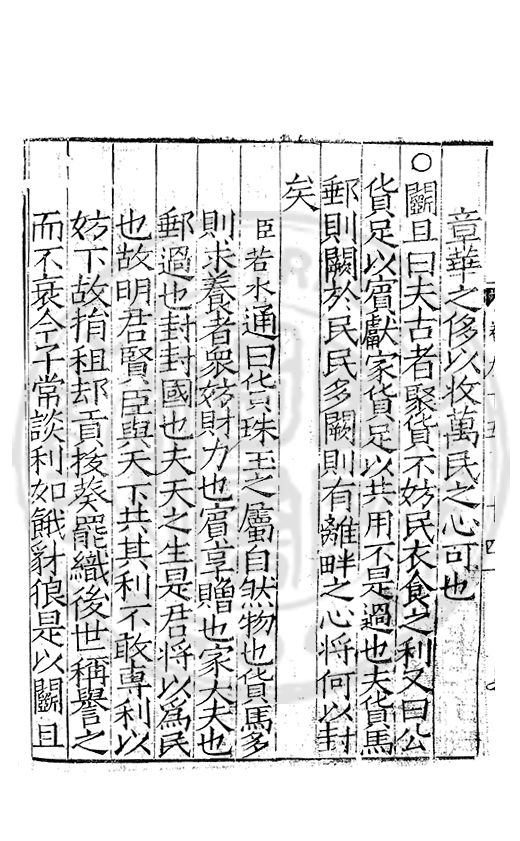 章華之侈以收萬民之心可也
○鬭且曰夫古者聚貨不妨民衣食之利又曰公
貨足以賓獻家貨足以共用不是過也夫貨馬
郵則闕於民民多闕則有離畔之心將何以封
矣
臣若水通曰貨珠玉之屬自然物也貨馬多
則求養者衆妨財力也賓享贈也家大夫也
郵過也封封國也夫天之生是君將以為民
也故明君賢臣與天下共其利不敢専利以
妨下故捐租却貢拔葵罷織後世稱譽之
而不衰今子常談利如餓豺狼是以鬭且